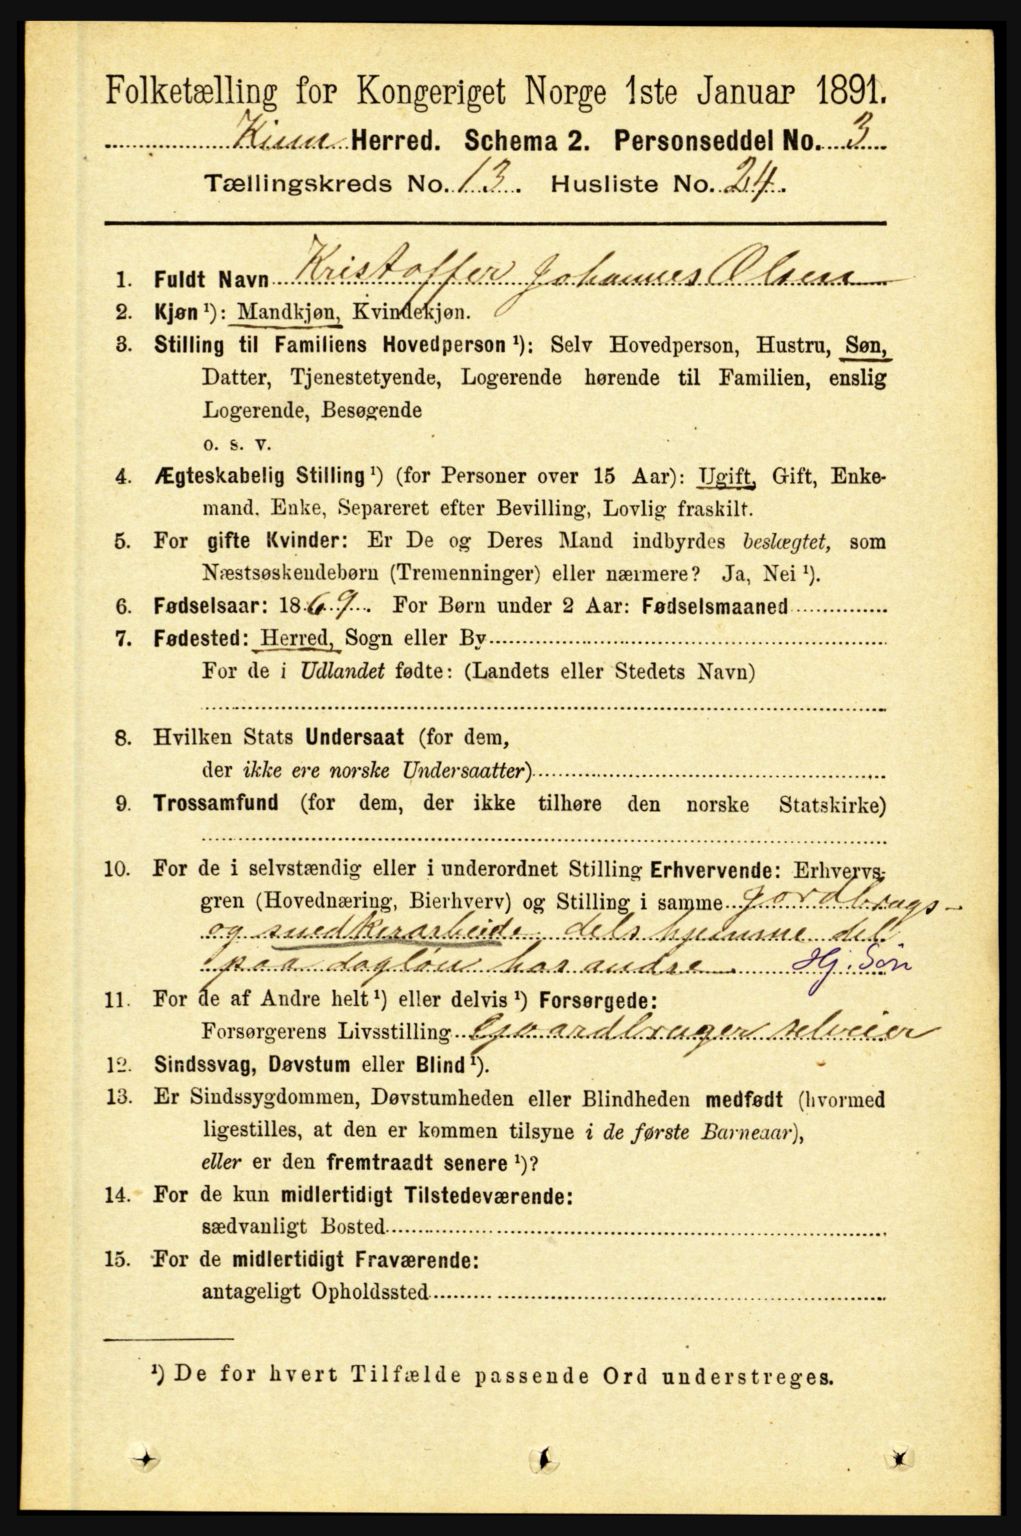 Folketælling for Kongeriget Norge 1ste Januar 1891.
Kinn Herred. Schema 2. Personseddel No. 3
Tællingskreds No. 13. Husliste No. 24.
1. Fuldt Navn Kristoffer Johannes Olsen
2. Kjøn ¹): Mandkjøn, Kvindekjøn.
3. Stilling til Familiens Hovedperson ¹): Selv Hovedperson, Hustru, Søn,
Datter, Tjenestetyende, Logerende hørende til Familien, enslig
Logerende, Besøgende
o. s. v.
4. Ægteskabelig Stilling ¹) (for Personer over 15 Aar): Ugift, Gift, Enke-
mand, Enke, Separeret efter Bevilling, Lovlig fraskilt.
5. For gifte Kvinder: Er De og Deres Mand indbyrdes beslægtet, som
Næstsøskendebørn (Tremenninger) eller nærmere? Ja, Nei ¹).
6. Fødselsaar: 1869. For Børn under 2 Aar: Fødselsmaaned
7. Fødested: Herred, Sogn eller By
For de i Udlandet fødte: (Landets eller Stedets Navn)
8. Hvilken Stats Undersaat (for dem,
der ikke ere norske Undersaatter)
9. Trossamfund (for dem, der ikke tilhøre den norske Statskirke)
10. For de i selvstændig eller i underordnet Stilling Erhvervende: Erhvervs-
gren (Hovednæring, Bierhverv) og Stilling i samme Jordbrugs-
og snedkerarbeide dels hjemme del
paa dagløn hos andre. Hj. Søn
11. For de af Andre helt ¹) eller delvis ¹) Forsørgede:
Forsørgerens Livsstilling Gaardbruger selveier
12. Sindssvag, Døvstum eller Blind ¹).
13. Er Sindssygdommen, Døvstumheden eller Blindheden medfødt (hvormed
ligestilles, at den er kommen tilsyne i de første Barneaar),
eller er den fremtraadt senere ¹)?
14. For de kun midlertidigt Tilstedeværende:
sædvanligt Bosted
15. For de midlertidigt Fraværende:
antageligt Opholdssted
¹) De for hvert Tilfælde passende Ord understreges.